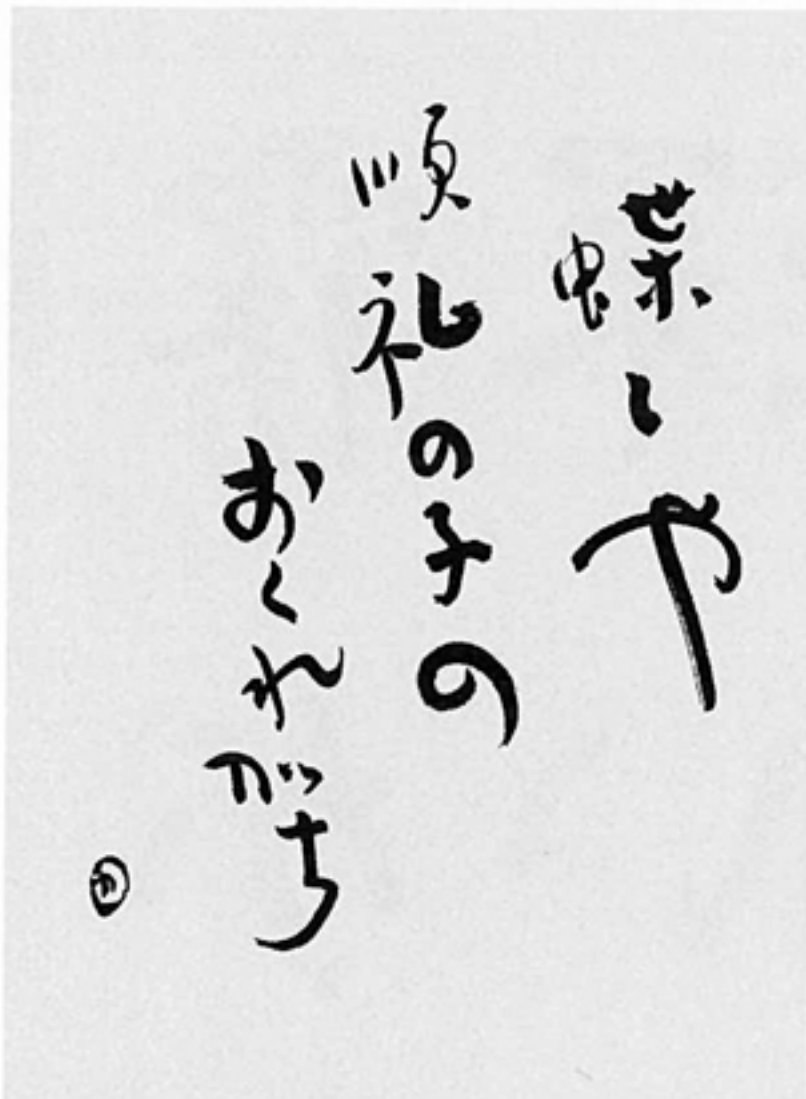 蝶々や
順礼の子の
おくれがち